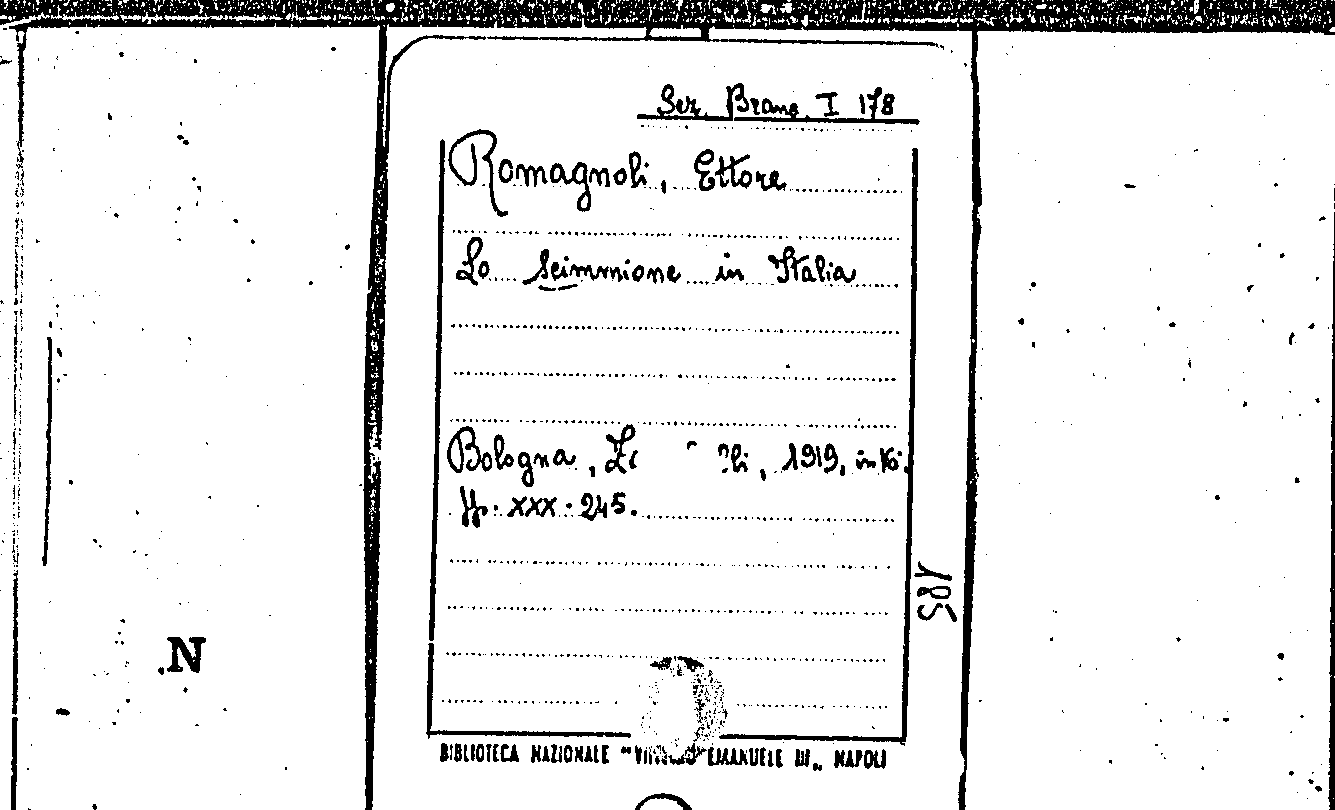 Sez. Branc. I 178
Romagnoli, Ettore
Lo scimmione in Italia
Bologna, 1919, in 16.
pp. XXX. 245.
185
N
BIBLIOTECA NAZIONALE "VITTORIO EMANUELE III" NAPOLI